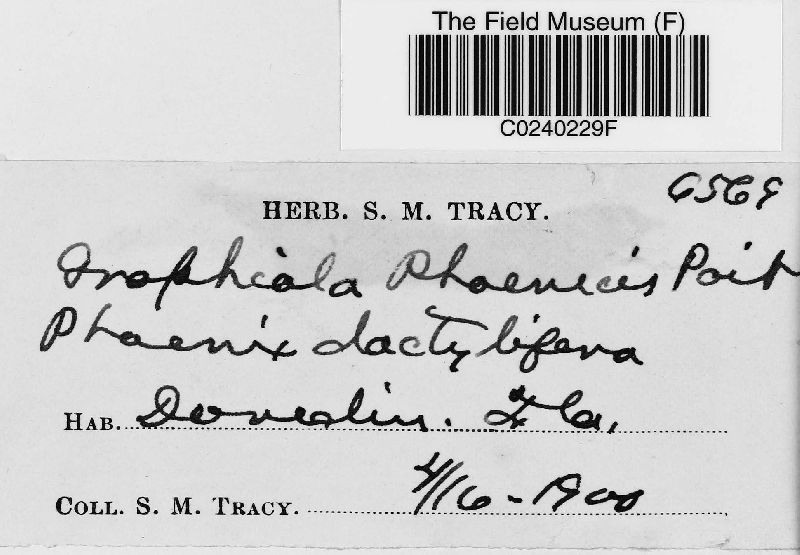 The Field Museum (F)
C0240229F
6569
HERB. S. M. TRACY.
Graphiola Phoenicis Poit
Phoenix dactylifera
HAB. Dunedin. Fla.
COLL. S. M. TRACY. 4/16-1900